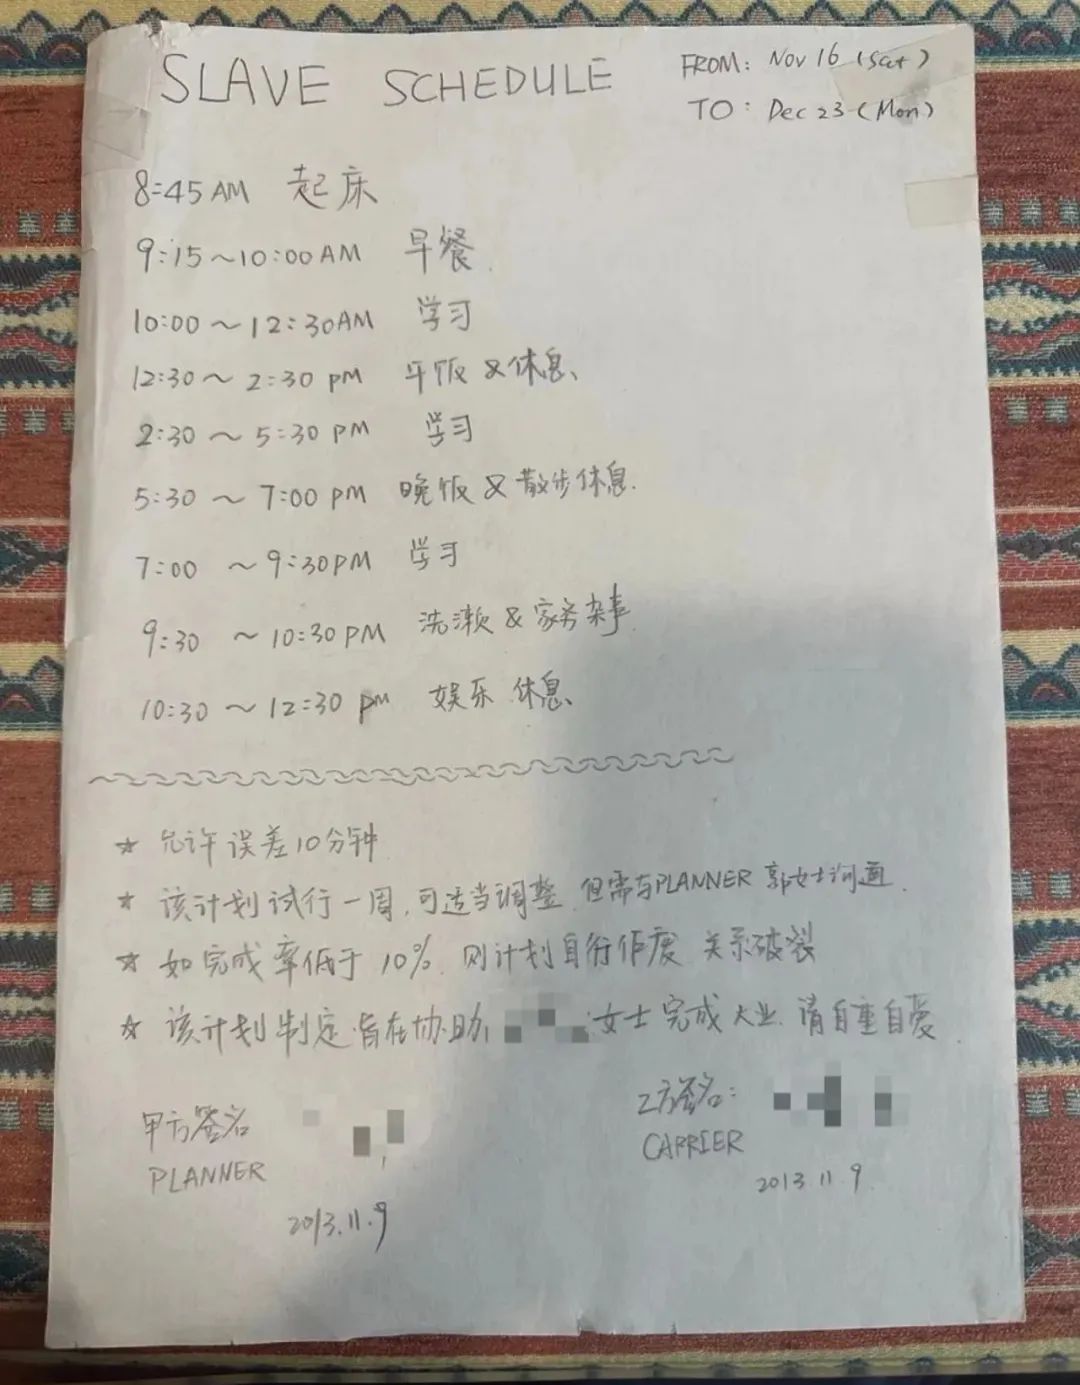 SLAVE SCHEDULE
FROM: Nov 16 (Sat)
TO: Dec 23 (Mon)
8:45 AM 起床
9:15~10:00 AM 早餐
10:00 ~ 12:30 AM 学习
12:30 ~ 2:30 pm 午饭 & 休息
2:30 ~ 5:30 PM 学习
5:30 ~ 7:00 PM 晚饭 & 散步休息.
7:00 ~ 9:30 PM 学习
9:30 ~ 10:30 PM 洗漱 & 家务杂事
10:30 ~ 12:30 pm 娱乐 休息
☆ 允许误差10分钟
☆ 该计划试行一周, 可适当调整 但需与PLANNER 郭女士沟通.
☆ 如完成率低于 10%, 则计划自行作废 关系破裂
☆ 该计划制定旨在协助 女士完成大业. 请自重自爱
甲方签名
PLANNER
2013.11.9
乙方签名:
CARRIER
2013 11.9